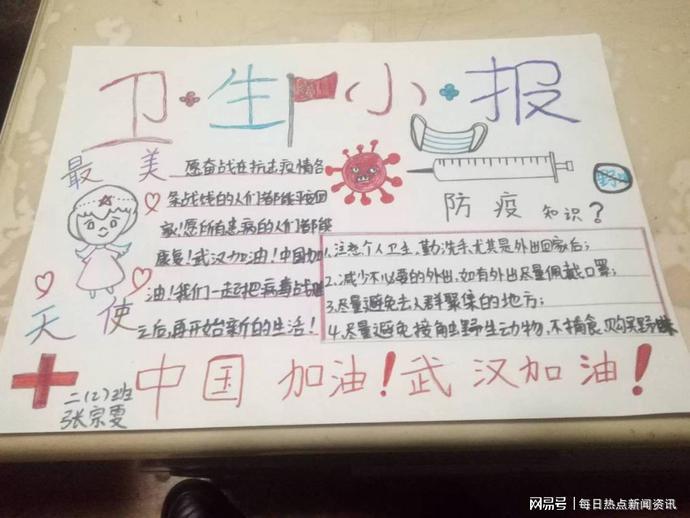 卫生小报
最美
天使
愿奋战在抗击疫情各
条战线的人们都能平安回
家!愿所有患病的人们都能
康复!武汉加油!中国加
油!我们一起把病毒战胜
之后,再开始新的生活!
防疫知识?
1.注意个人卫生,勤洗手尤其是外出回家后;
2.减少不必要的外出,如有外出尽量佩戴口罩;
3.尽量避免去人群聚集的地方;
4.尽量避免接触野生动物,不捕食、购买野味
中国加油!武汉加油!
二(2)班
张宗雯
网易号 | 每日热点新闻资讯